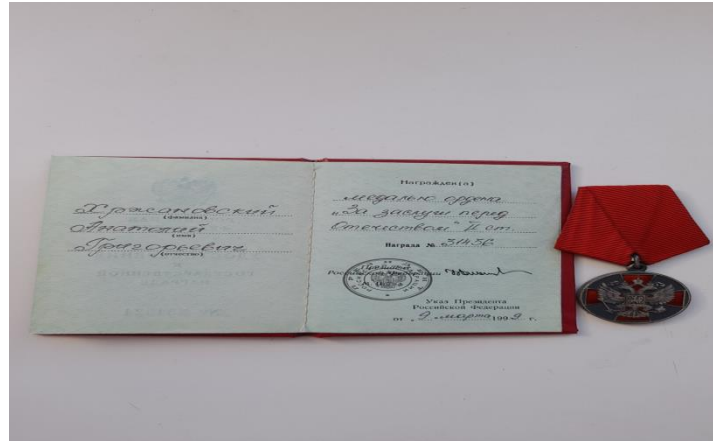 Хржановский
(фамилия)
Анатолий
(имя)
Григорьевич
(отчество)
Награжден(а)
медалью ордена
„За заслуги перед
Отечеством" II ст.
Награда №
Президент
Российской Федерации
Указ Президента
Российской Федерации
от „9" марта 1999 г.